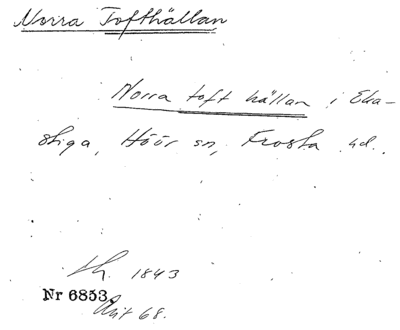 Norra Tofthällan
Norra toft hällan i Eka-
stiga, Höör sn, Frosta hd.
Lh. 1843
Nr 6853.
Avt 68.